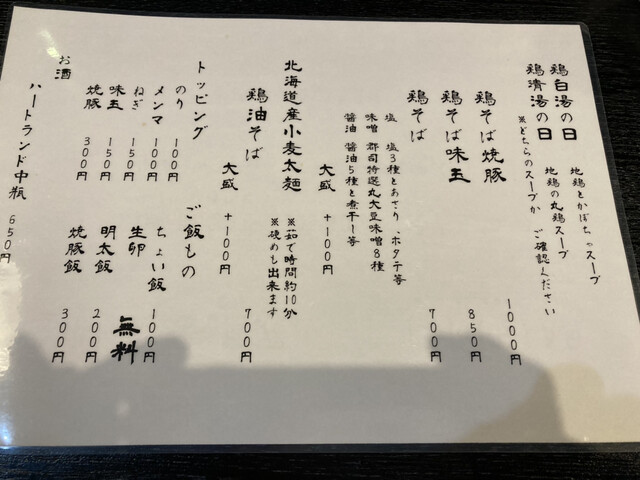 鶏白湯の日 地鶏とかぼちゃスープ
鶏清湯の日 地鶏の丸鶏スープ
※どちらのスープか、ご確認ください
鶏そば焼豚 1000円
鶏そば味玉 850円
鶏そば 700円
塩 塩3種とあさり、ホタテ等
味噌 郡司特選丸大豆味噌8種
醤油 醤油5種と煮干し等
大盛 +100円
北海道産小麦太麺 ※茹で時間約10分
※硬めも出来ます
鶏油そば 700円
大盛 +100円
トッピング
のり 100円
メンマ 100円
ねぎ 150円
味玉 150円
焼豚 300円
ご飯もの
ちょい飯 100円
生卵 無料
明太飯 200円
焼豚飯 300円
お酒
ハートランド中瓶 650円